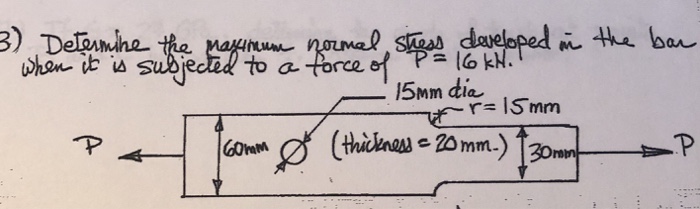 3) Determine the maximum normal stress developed in the bar
when it is subjected to a force of P = 16 kN.
15mm dia
r = 15mm
P
60mm
(thickness = 20mm.)
30mm
P